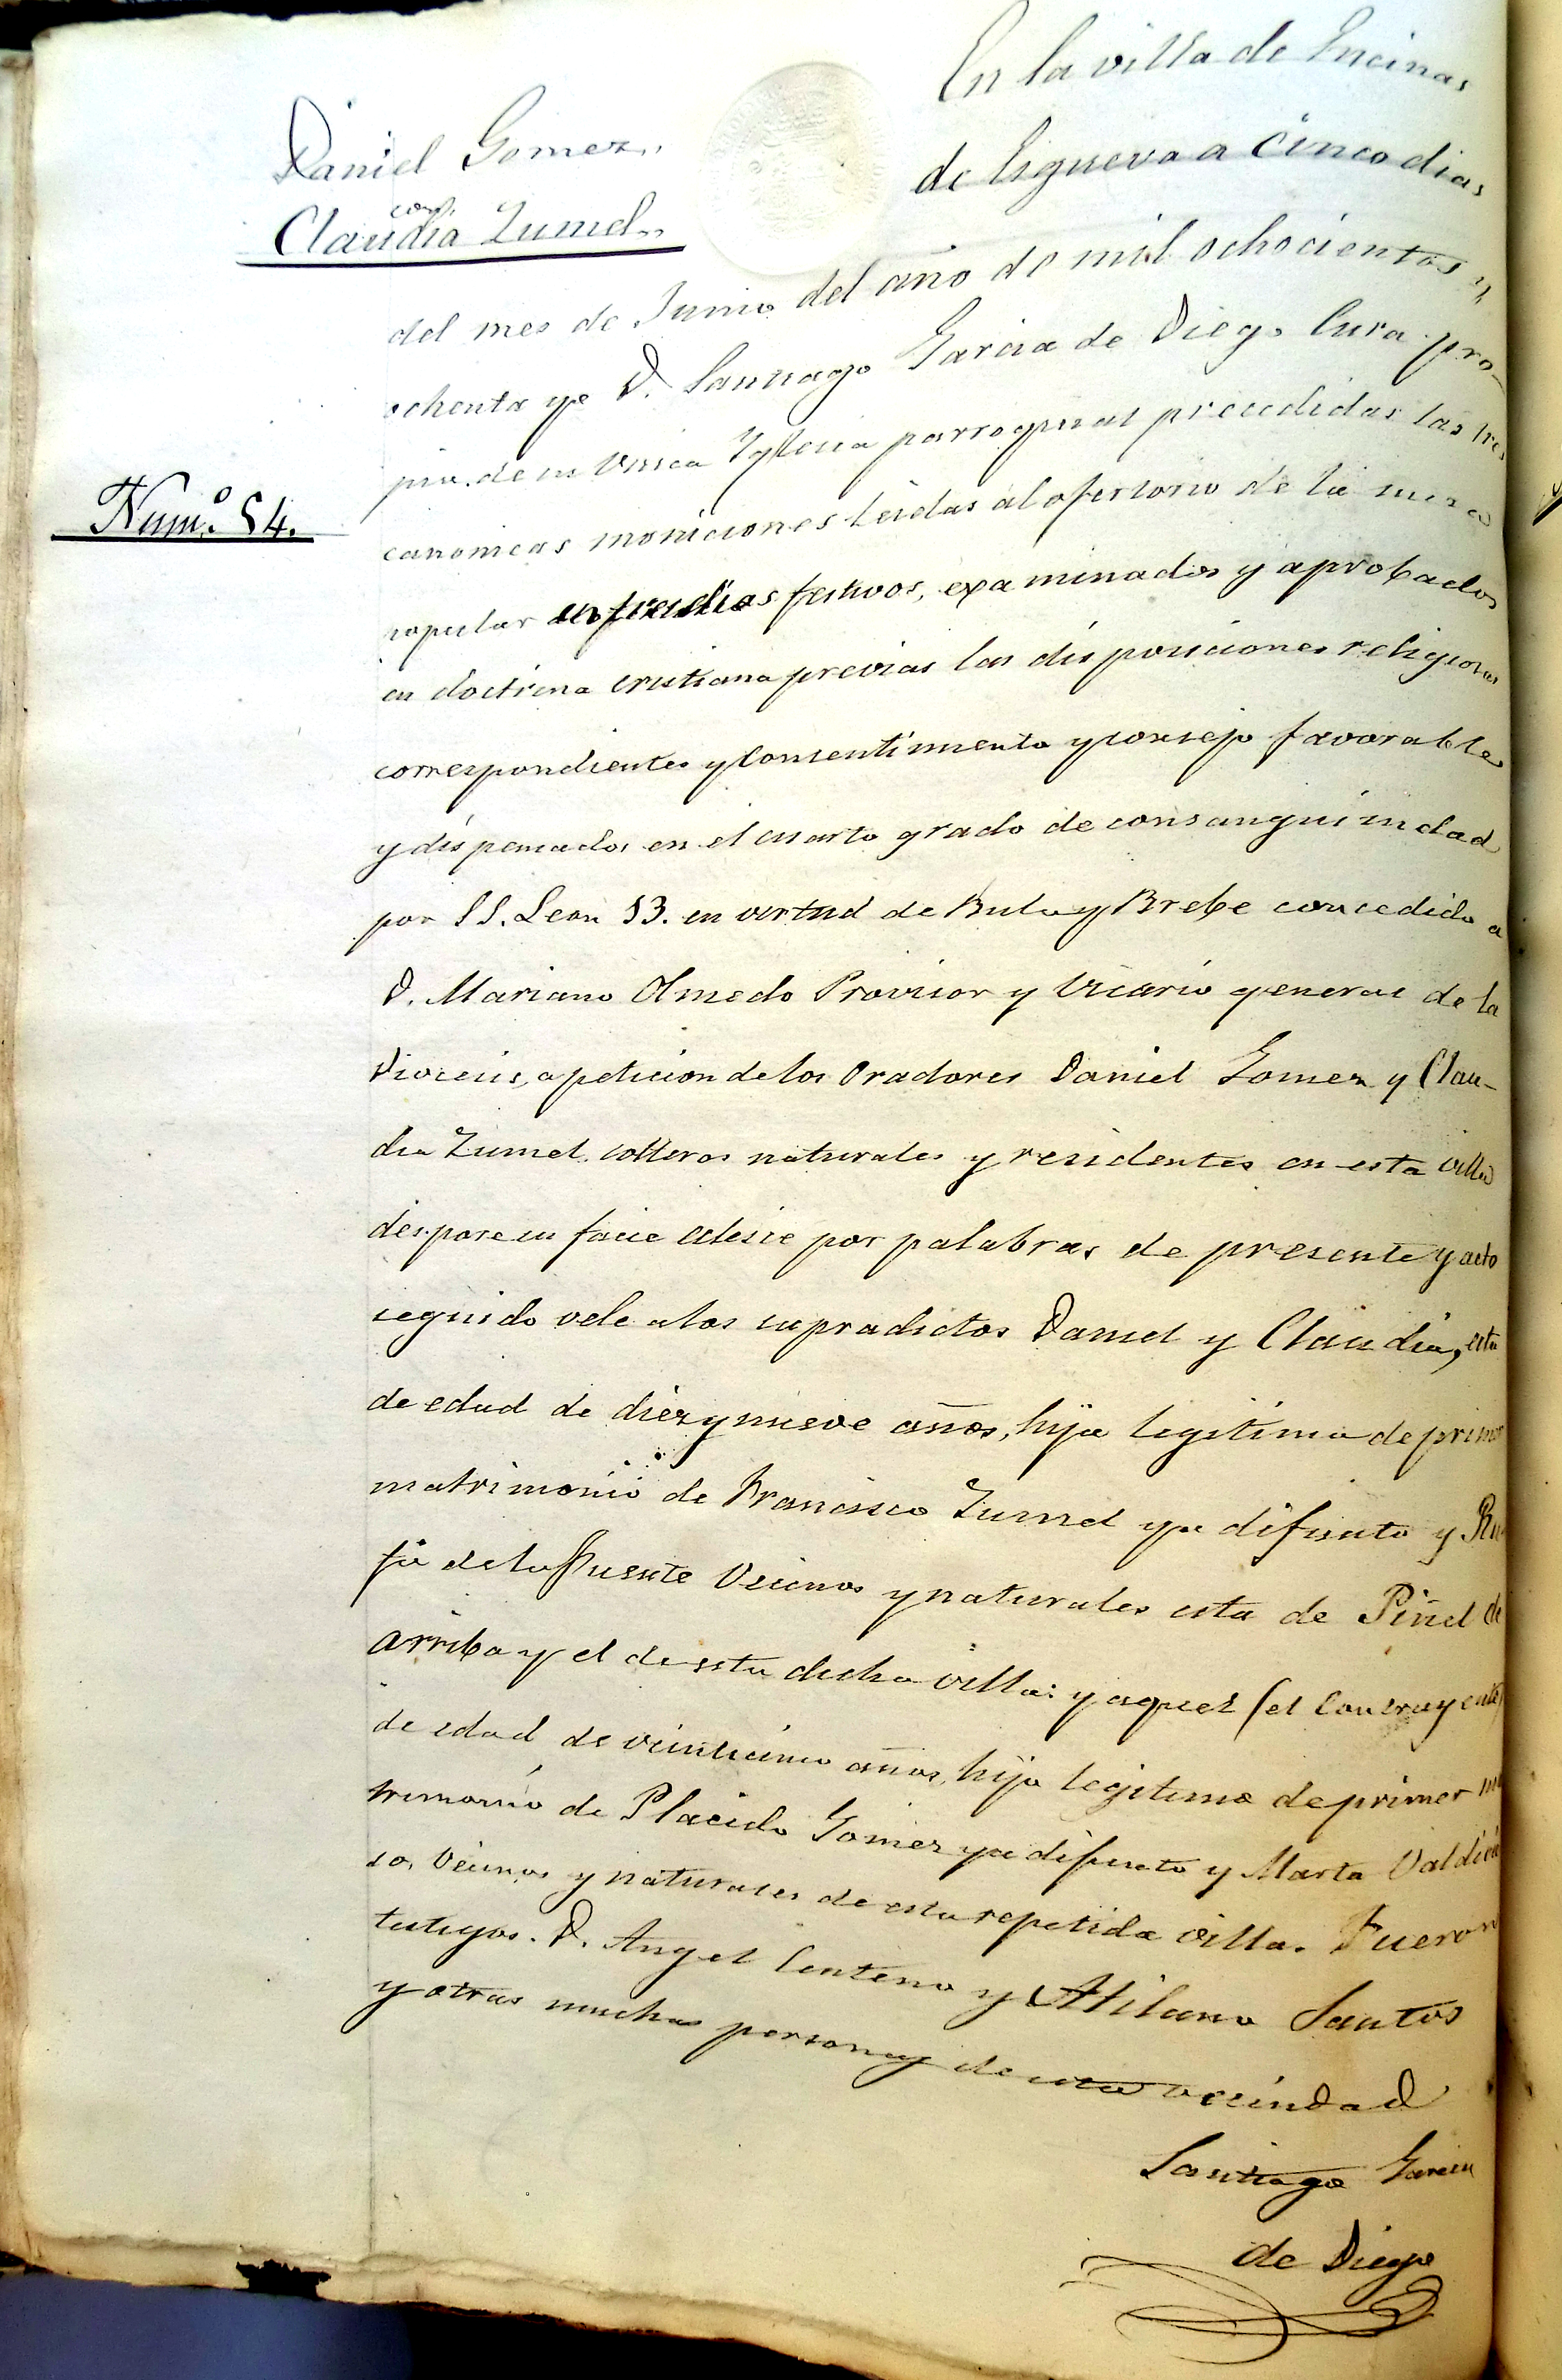 Daniel Gomez
con
Claudia Zumel
Num.º 54.
En la villa de Encinas
de Esgueva a cinco dias
del mes de Junio del año de mil ochocientos y
ochenta yo D. Santiago Garcia de Diego Cura pro-
pio de su Unica Yglesia parroquial precedidas las tres
canonicas moniciones leidas al ofertorio de la misa
popular en tres dias festivos, examinados y aprobados
en doctrina cristiana previas las disposiciones religiosas
correspondientes y consentimiento y consejo favorables
y dispensados en el cuarto grado de consanguinidad
por S S. Leon 13. en virtud de Bula y Brebe concedido a
D. Mariano Olmedo Provisor y Vicario general de la
Diocesis, a peticion de los Oradores Daniel Gomez y Clau-
dia Zumel solteros naturales y residentes en esta villa
despose in facie eclesie por palabras de presente y acto
seguido vele a los supradictos Daniel y Claudia, esta
de edad de diez y nueve años, hija legitima de primer
matrimonio de Francisco Zumel ya difunto y Ru
fa de la Fuente Vecinos y naturales esta de Piñel de
arriba y el de esta dicha villa: y aquel (el Contrayente)
de edad de veinticinco años, hijo legitimo de primer ma
trimonio de Placido Gomez ya difunto y Marta Valdivie
so, Vecinos y naturales de esta repetida villa. Fueron
testigos. D. Angel Centeno y Atilano Santos
y otras muchas personas de esta vecindad
Santiago Garcia
de Diego